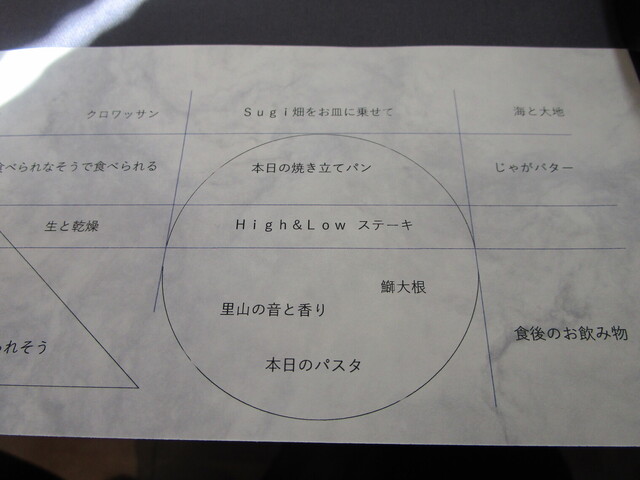 クロワッサン
Sugi畑をお皿に乗せて
海と大地
食べられなそうで食べられる
本日の焼き立てパン
じゃがバター
生と乾燥
High&Low ステーキ
鰤大根
里山の音と香り
られそう
食後のお飲み物
本日のパスタ